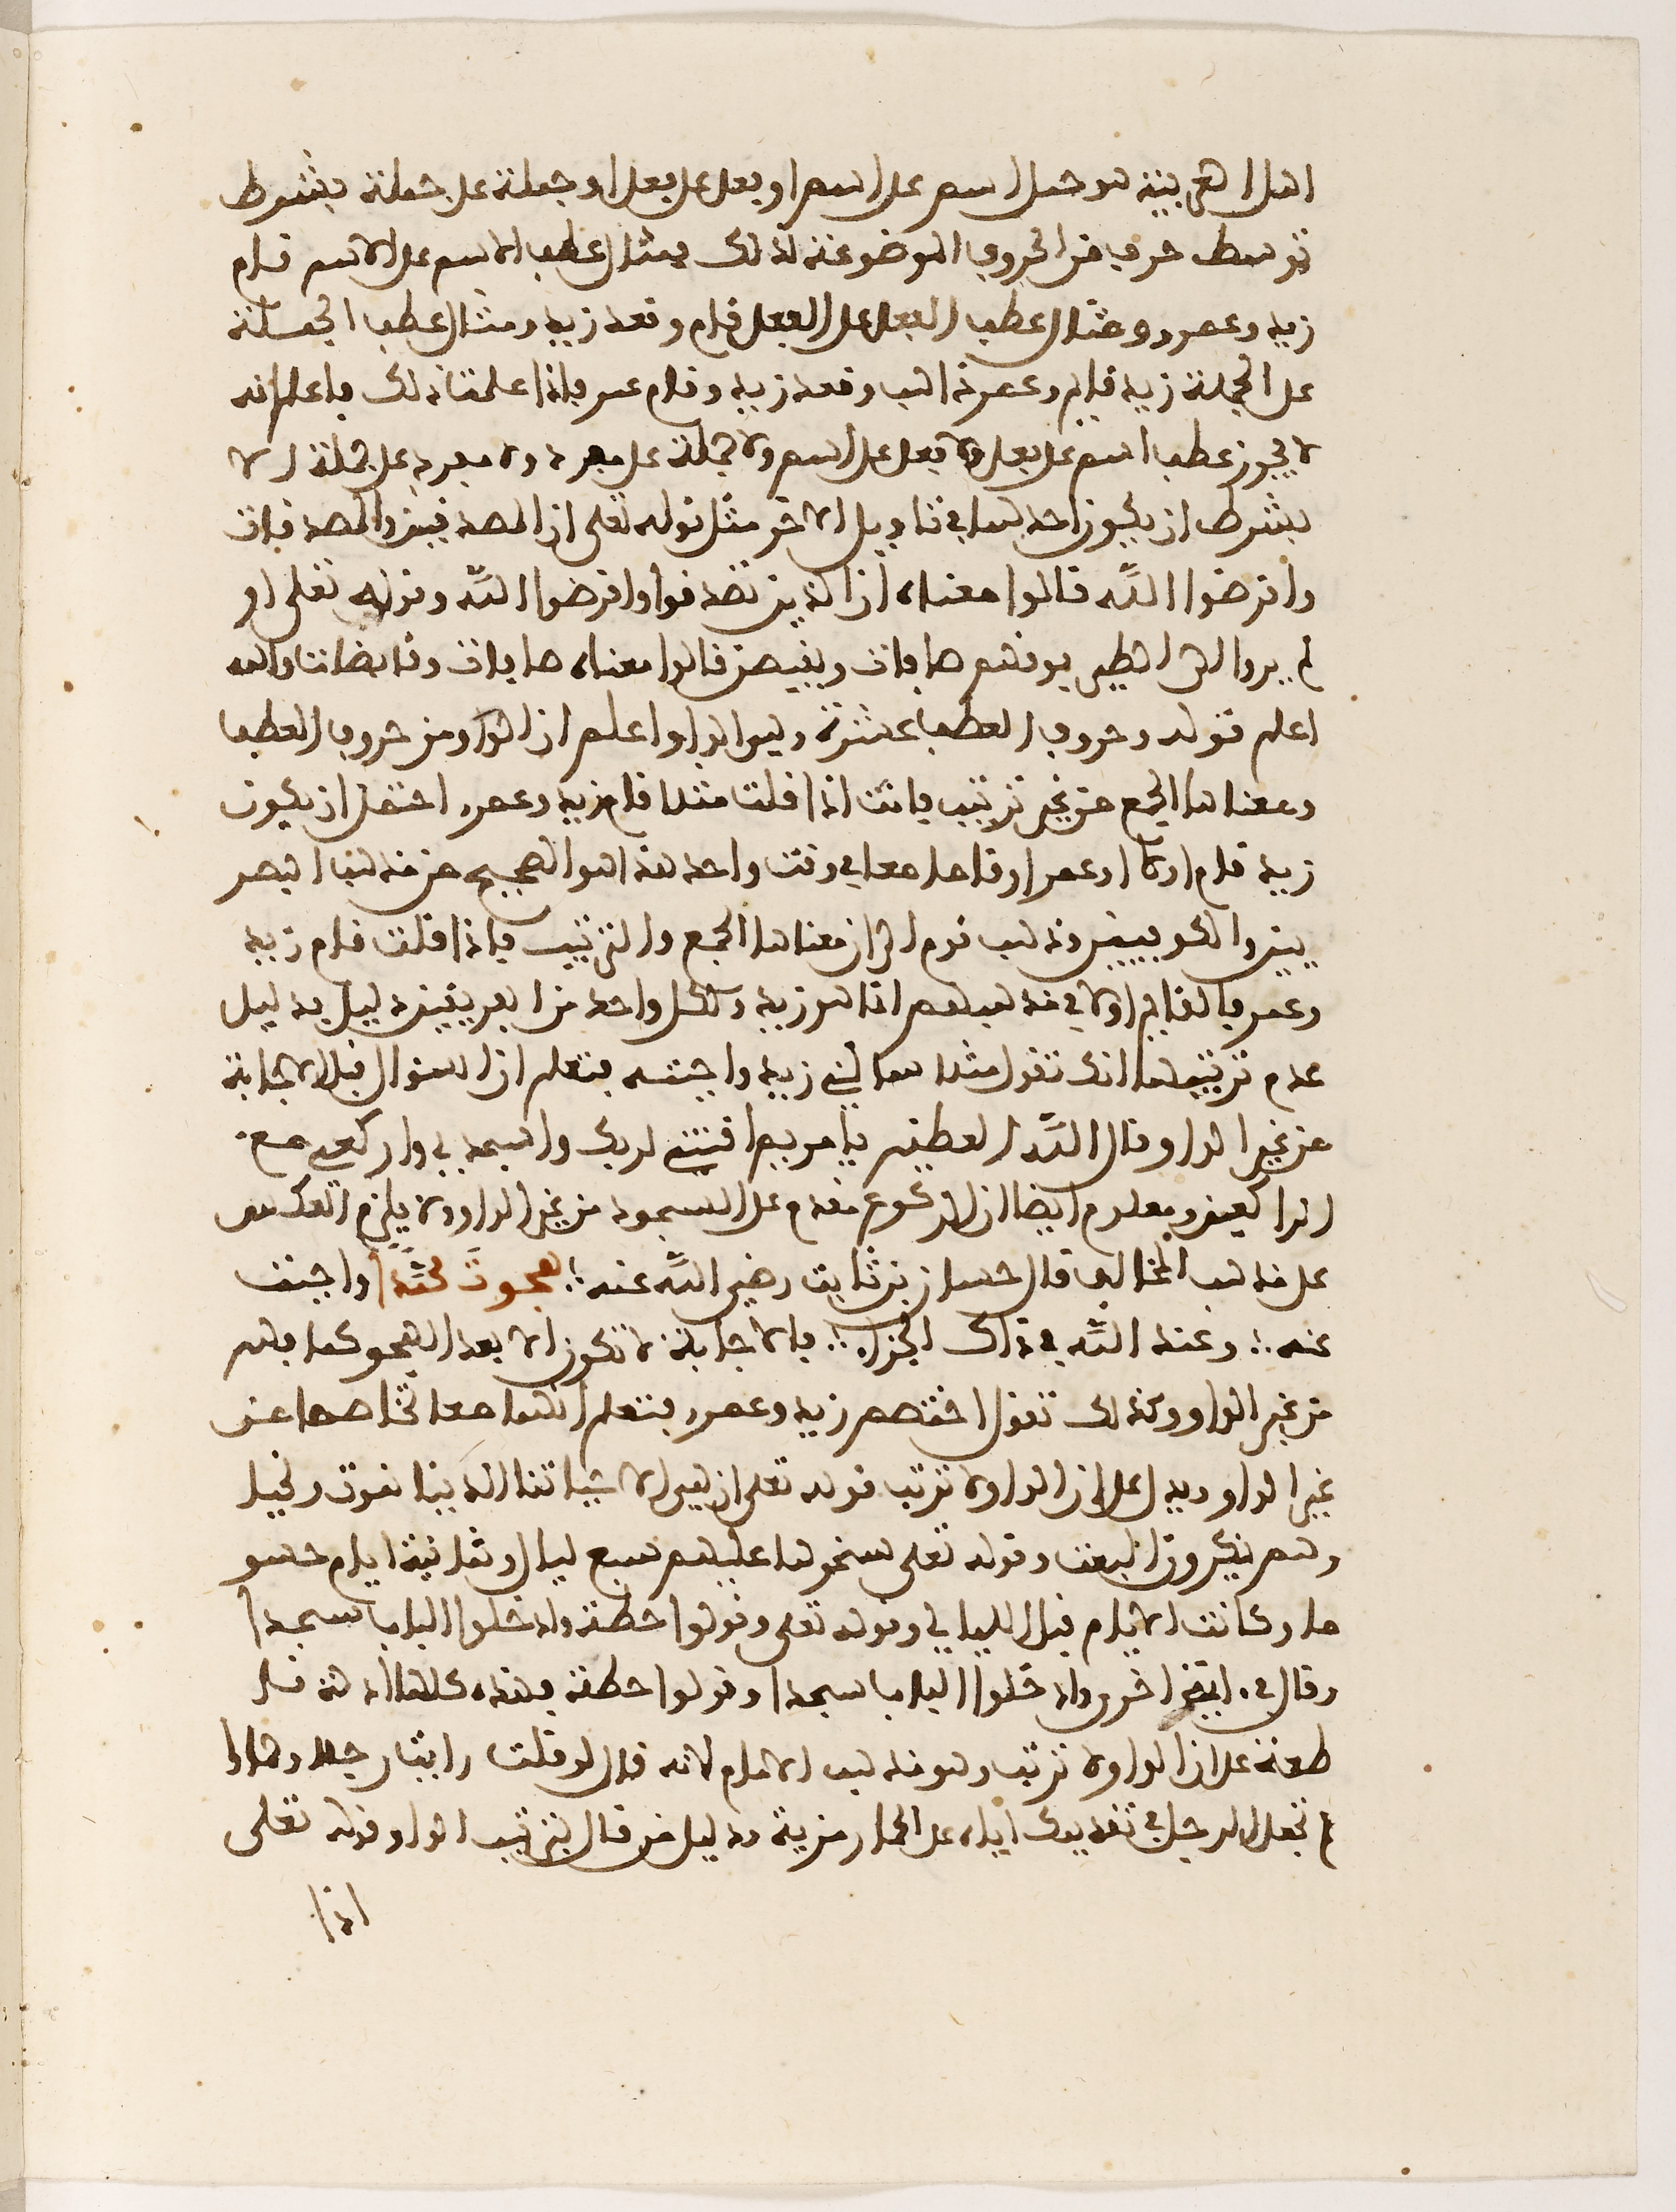 اهل العربية هو حمل اسم على اسم او فعل على فعل او جملة على جملة بشرط
توسط حرف من الحروف الموضوعة لذلك فمثال عطف الاسم على الاسم قام
زيد وعمرو ومثال عطف الفعل على الفعل قام وقعد زيد ومثال عطف الجملة
على الجملة زيد قايم وعمر ذاهب وقعد زيد وقام عمر فاذا علمت ذلك فاعلم انه
لا يجوز عطف اسم على فعل ولا فعل على اسم ولا جملة على مفرد ولا مفرد على جملة الا
بشرط ان يكون احدهما في تاويل الاخر مثل قوله تعلى ان المصدقين والمصدقات
واقرضوا الله قالوا معناه ان الذين تصدقوا واقرضوا الله وقوله تعلى او
لم يروا الى الطير فوقهم صافات ويقبضن قالوا معناه صافات وقابضات والله
اعلم قوله وحروف العطف عشرة وهي الواو اعلم ان الواو من حروف العطف
ومعناها الجمع من غير ترتيب فانت اذا قلت مثلا قام زيد وعمرو احتمل ان يكون
زيد قام اولا او عمر او قاما معا في وقت واحد هذا هو الصحيح من مذهب البصر
يين والكوفيين وذهب قوم الى ان معناها الجمع والترتيب فاذا قلت قام زيد
وعمر فالقايم اولا في مذهبهم انما هو زيد ولكل واحد من الفريقين دليل فدليل
عدم ترتيبها انك تقول مثلا سالني زيد واجبته فتعلم ان السؤال قبل الاجابة
من غير الواو وقال الله العظيم يا مريم اقنتي لربك واسجدي واركعي مع
الراكعين ومعلوم ايضا ان الركوع مقدم على السجود من غير الواو ولا يلزم العكس
على مذهب المخالف قال حسان بن ثابت رضي الله عنه ؛ هجوتَ محمَّدًا واجبت
عنه ؛ وعند الله في ذاك الجزاء ؛ فالاجابة لا تكون الا بعد الهجو كما فهم
من غير الواو وكذلك تقول اختصم زيد وعمرو فتعلم انهما معا تخاصما من
غير الواو ويدل على ان الواو لا ترتب قوله تعلى ان هي الا حياتنا الدنيا نموت ونحيا
وهم ينكرون البعث وقوله تعلى سخرها عليهم سبع ليال وثمانية ايام حسو
ما وكانت الايام قبل الليالي وقوله تعلى وقولوا حطة وادخلوا الباب سجدا
وقال في ايةٍ اخرى وادخلوا الباب سجدا وقولوا حطة فهذه كلها ادلة قا
طعة على ان الواو لا ترتب وهو مذهب الامام لانه قال لو قلت رايت رجلا وحمارا
لم تجعل للرجل في تقديمك اياه على الحمار مزية ودليل من قال بترتيب الواو قوله تعلى
اذا